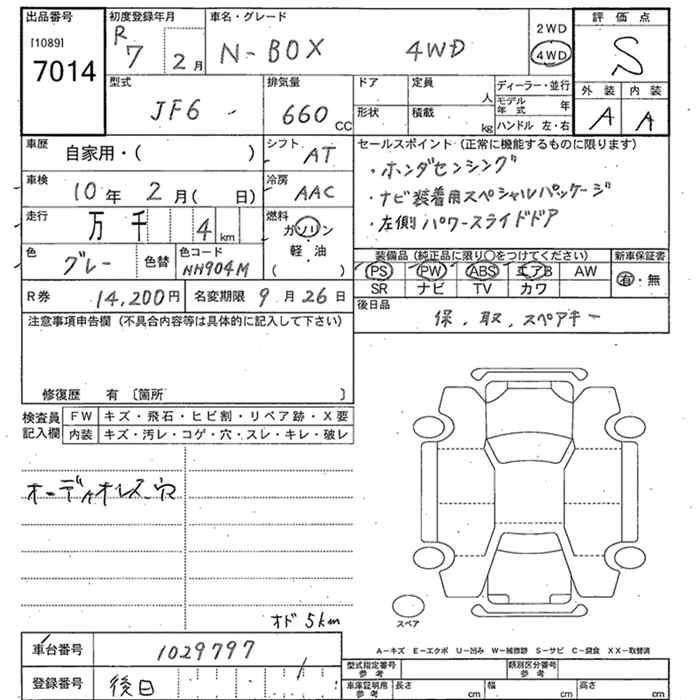 出品番号
[1089]
7014
初度登録年月
R 7 2 月
車名・グレード
N-BOX 4WD
2WD
4WD
評価点
S
外装 内装
A A
型式
JF6
排気量
660 CC
ドア
形状
定員 人
積載 kg
ディーラー・並行
モデル年式 年
ハンドル 左・右
車歴
自家用・( )
シフト
AT
車検
10 年 2 月( 日)
冷房
AAC
走行
万 千 4 km
燃料
ガソリン
軽・油
( )
色
グレー
色替
色コード
NH904M
R券
14,200円
名変期限 9 月 26 日
セールスポイント(正常に機能するものに限ります)
・ホンダセンシング
・ナビ装着用スペシャルパッケージ
・左側パワースライドドア
装備品(純正品に限り○をつけてください)
新車保証書
PS PW ABS エアB AW
有・無
SR ナビ TV カワ
後日品
保、取、スペアキー
注意事項申告欄(不具合内容等は具体的に記入して下さい)
修復歴 有 〔箇所 〕
検査員記入欄
FW キズ・飛石・ヒビ割・リペア跡・X要
内装 キズ・汚レ・コゲ・穴・スレ・キレ・破レ
オーディオレス穴
オド 5km
スペア
A-キズ E-エクボ U-凹み W-補修跡 S-サビ C-腐食 XX-取替済
車台番号
1029797
登録番号
後日
型式指定番号 参考
類別区分番号 参考
車庫証明用 参考
長さ cm
幅 cm
高さ cm